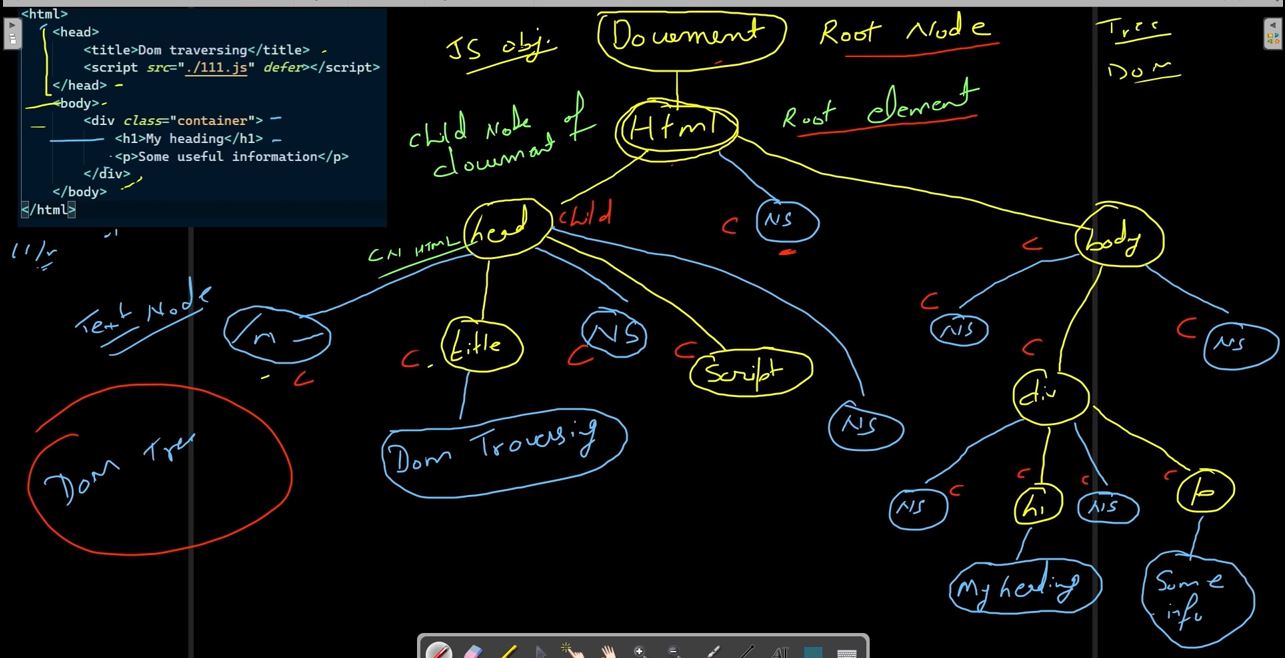 <html>
<head>
<title>Dom traversing</title>
<script src="./111.js" defer></script>
</head>
<body>
<div class="container">
<h1>My heading</h1>
<p>Some useful information</p>
</div>
</body>
</html>
JS obj.
Document
Root Node
Tree
Dom
Child Node of
document
Html
Root element
head
child
C
NS
C
body
CN HTML
Text Node
/n
C
C
title
C
NS
C
Script
NS
C
NS
C
NS
C
div
Dom Tree
Dom Traversing
NS
C
C
h1
C
NS
C
p
My heading
Some
info